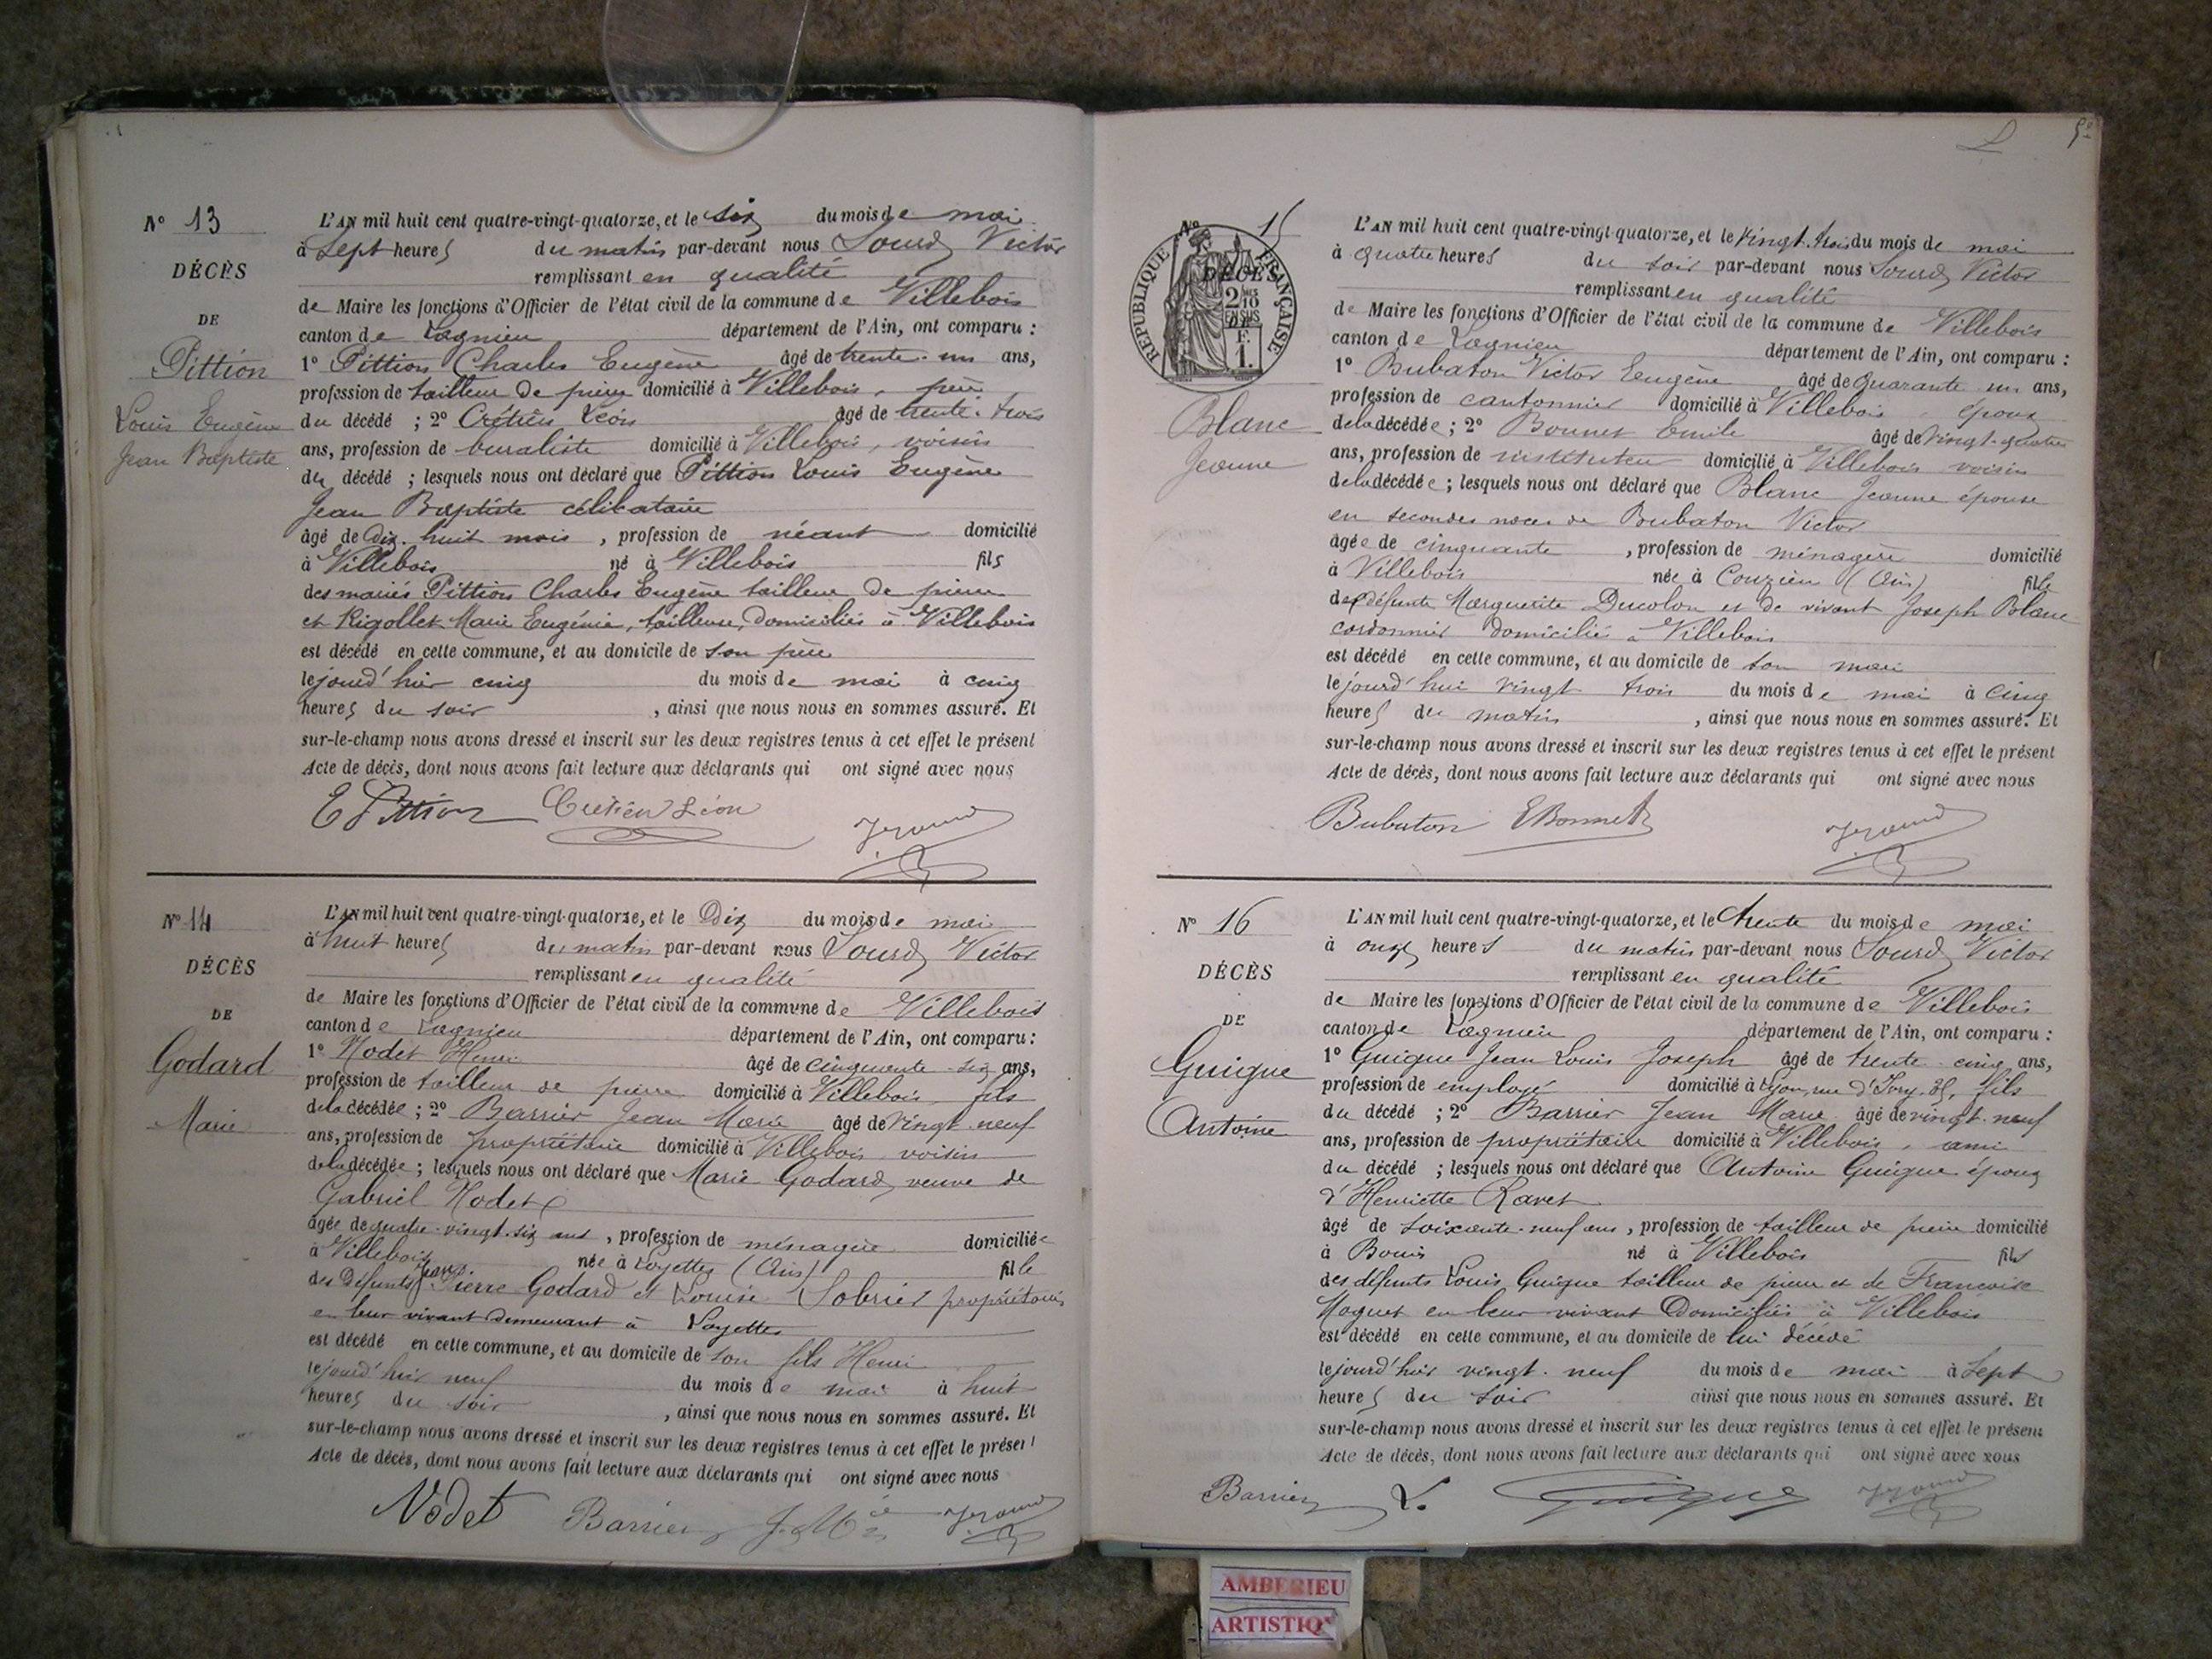 N° 13
DÉCÈS
DE
Pittion
Louis Eugène
Jean Baptiste
L'AN mil huit cent quatre-vingt-quatorze, et le six du mois de mai
à sept heures du matin par-devant nous Sourd Victor
remplissant en qualité
de Maire les fonctions d'Officier de l'état civil de la commune de Villebois
canton de Lagnieu département de l'Ain, ont comparu :
1° Pittion Charles Eugène âgé de trente-un ans,
profession de tailleur de pierre domicilié à Villebois, père
du décédé ; 2° Crétien Léon âgé de trente-trois
ans, profession de buraliste domicilié à Villebois, voisin
du décédé ; lesquels nous ont déclaré que Pittion Louis Eugène
Jean Baptiste célibataire
âgé de Dix-huit mois, profession de néant domicilié
à Villebois né à Villebois fils
des mariés Pittion Charles Eugène tailleur de pierre
et Rigollet Marie Eugénie, tailleuse, domiciliés à Villebois
est décédé en cette commune, et au domicile de son père
le jourd'hier cinq du mois de mai à cinq
heures du soir, ainsi que nous nous en sommes assuré. Et
sur-le-champ nous avons dressé et inscrit sur les deux registres tenus à cet effet le présent
Acte de décès, dont nous avons fait lecture aux déclarants qui ont signé avec nous
E Pittion Cretien Léon
N° 14
DÉCÈS
DE
Godard
Marie
L'AN mil huit cent quatre-vingt-quatorze, et le Dix du mois de mai
à huit heures du matin par-devant nous Sourd Victor
remplissant en qualité
de Maire les fonctions d'Officier de l'état civil de la commune de Villebois
canton de Lagnieu département de l'Ain, ont comparu :
1° Nodet Henri âgé de cinquante-six ans,
profession de tailleur de pierre domicilié à Villebois, fils
de la décédée ; 2° Barrier Jean Marie âgé de vingt-neuf
ans, profession de propriétaire domicilié à Villebois voisin
de la décédée ; lesquels nous ont déclaré que Marie Godard, veuve de
Gabriel Nodet
âgée de quatre-vingt-six ans, profession de ménagère domiciliée
à Villebois née à Loyettes (Ain) fille
des défunts Jean Pierre Godard et Louise Sobrier propriétaires
en leur vivant demeurant à Loyettes
est décédé en cette commune, et au domicile de son fils Henri
le jourd'hier neuf du mois de mai à huit
heures du soir, ainsi que nous nous en sommes assuré. Et
sur-le-champ nous avons dressé et inscrit sur les deux registres tenus à cet effet le présent
Acte de décès, dont nous avons fait lecture aux déclarants qui ont signé avec nous
Nodet Barrier J. Mie
N° 15
RÉPUBLIQUE FRANÇAISE
DÉCÈS
2/10 EN SUS
F. 1.
Blanc
Jeanne
L'AN mil huit cent quatre-vingt-quatorze, et le vingt-trois du mois de mai
à quatre heures du soir par-devant nous Sourd Victor
remplissant en qualité
de Maire les fonctions d'Officier de l'état civil de la commune de Villebois
canton de Lagnieu département de l'Ain, ont comparu :
1° Bubaton Victor Eugène âgé de quarante-un ans,
profession de cantonnier domicilié à Villebois, époux
de la décédée ; 2° Bonnet Emile âgé de vingt-quatre
ans, profession de instituteur domicilié à Villebois voisin
de la décédée ; lesquels nous ont déclaré que Blanc Jeanne épouse
en secondes noces de Bubaton Victor
âgée de cinquante, profession de ménagère domicilié
à Villebois née à Couzieu (Ain) fille
de défunte Marguerite Ducolon et de vivant Joseph Blanc
cordonnier domiciliés à Villebois
est décédé en cette commune, et au domicile de son mari
le jourd'hui vingt trois du mois de mai à cinq
heures du matin, ainsi que nous nous en sommes assuré. Et
sur-le-champ nous avons dressé et inscrit sur les deux registres tenus à cet effet le présent
Acte de décès, dont nous avons fait lecture aux déclarants qui ont signé avec nous
Bubaton E Bonnet
N° 16
DÉCÈS
DE
Guigue
Antoine
L'AN mil huit cent quatre-vingt-quatorze, et le trente du mois de mai
à onze heures du matin par-devant nous Sourd Victor
remplissant en qualité
de Maire les fonctions d'Officier de l'état civil de la commune de Villebois
canton de Lagnieu département de l'Ain, ont comparu :
1° Guigue Jean Louis Joseph âgé de trente-cinq ans,
profession de employé domicilié à Lyon, rue d'Ivry, fils
du décédé ; 2° Barrier Jean Marie âgé de vingt-neuf
ans, profession de propriétaire domicilié à Villebois, ami
du décédé ; lesquels nous ont déclaré que Antoine Guigue époux
d'Henriette Ravet
âgé de soixante-neuf ans, profession de tailleur de pierre domicilié
à Bouis né à Villebois fils
des défunts Louis Guigue tailleur de pierre et de Françoise
Maguet en leur vivant domiciliés à Villebois
est décédé en cette commune, et au domicile de lui décédé
le jourd'hier vingt-neuf du mois de mai à sept
heures du soir ainsi que nous nous en sommes assuré. Et
sur-le-champ nous avons dressé et inscrit sur les deux registres tenus à cet effet le présent
Acte de décès, dont nous avons fait lecture aux déclarants qui ont signé avec nous
Barrier L. Guigue
AMBERIEU
ARTISTIQ